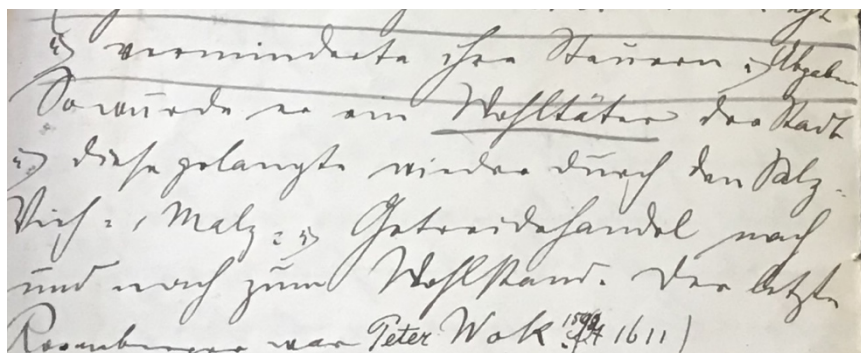 u. verminderte ihre Steuern u. Abgaben
So wurde er ein Wohltäter der Stadt
u. diese gelangte wieder durch den Salz-
Vieh-, Malz- u. Getreidehandel nach
und nach zum Wohlstand. Der letzte
Rosenberger war Peter Wok † 1611)